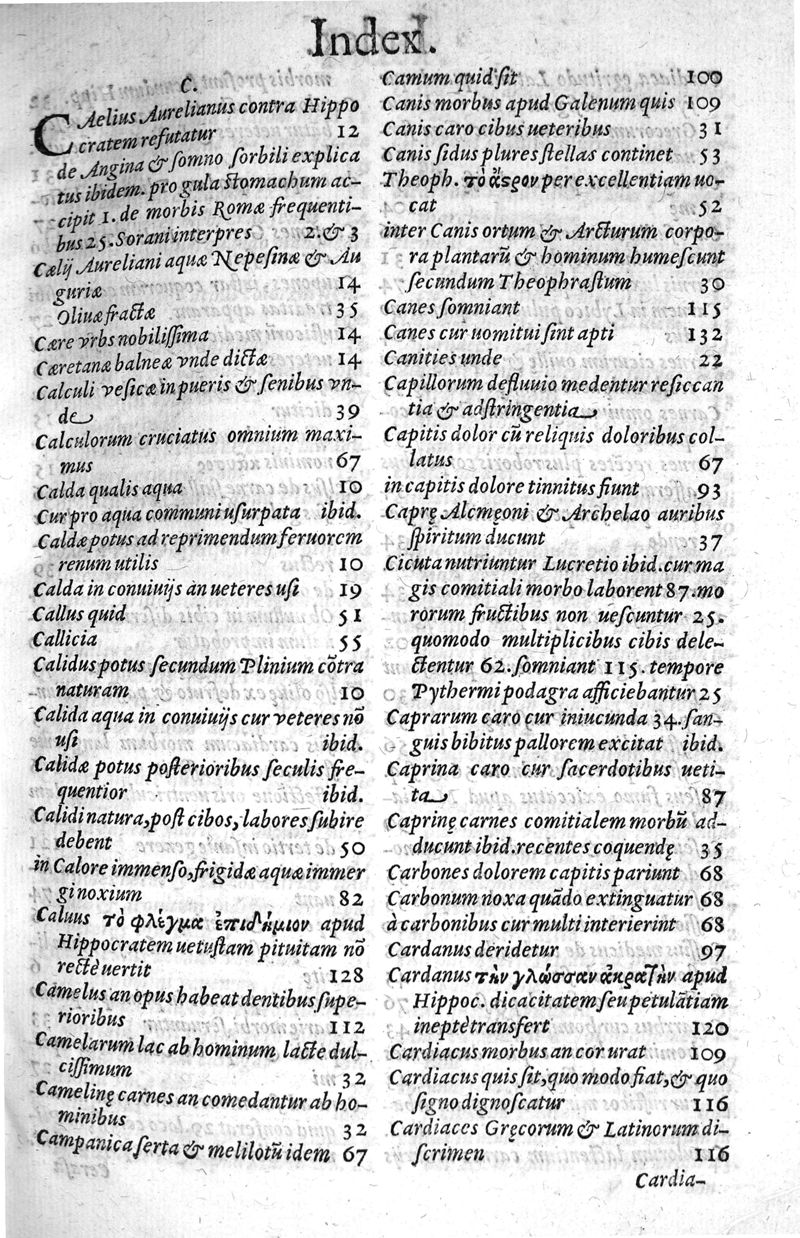 Index.
C.
CAelius Aurelianus contra Hippo
cratem refutatur 12
de Angina & somno sorbili explica
tus ibidem. pro gula stomachum ac-
cipit 1. de morbis Romæ frequenti-
bus 25. Sorani interpres 2. & 3
Cælij Aureliani aquæ Nepesinæ & Au
guriæ 14
Oliuæ fractæ 35
Cære vrbs nobilissima 14
Cæretanæ balneæ vnde dictæ 14
Calculi vesicæ in pueris & senibus vn-
de 39
Calculorum cruciatus omnium maxi-
mus 67
Calda qualis aqua 10
Cur pro aqua communi usurpata ibid.
Caldæ potus ad reprimendum feruorem
renum utilis 10
Calda in conuiuijs an ueteres usi 19
Callus quid 51
Callicia 55
Calidus potus secundum Plinium cõtra
naturam 10
Calida aqua in conuiuijs cur veteres nõ
usi ibid.
Calidæ potus posterioribus seculis fre-
quentior ibid.
Calidi natura, post cibos, labores subire
debent 50
in Calore immenso, frigidæ aquæ immer
gi noxium 82
Caluus τὸ φλέγμα ἐπιδήμιον apud
Hippocratem uetustam pituitam nõ
rectè uertit 128
Camelus an opus habeat dentibus supe-
rioribus 112
Camelarum lac ab hominum lacte dul-
cissimum 32
Camelinę carnes an comedantur ab ho-
minibus 32
Campanica serta & melilotũ idem 67
Camum quid sit 100
Canis morbus apud Galenum quis 109
Canis caro cibus ueteribus 31
Canis sidus plures stellas continet 53
Theoph. τὸ ἄστρον per excellentiam uo-
cat 52
inter Canis ortum & Arcturum corpo-
ra plantarũ & hominum humescunt
secundum Theophrastum 30
Canes somniant 115
Canes cur uomitui sint apti 132
Canities unde 22
Capillorum defluuio medentur resiccan
tia & adstringentia
Capitis dolor cũ reliquis doloribus col-
latus 67
in capitis dolore tinnitus fiunt 93
Caprę Alcmęoni & Archelao auribus
spiritum ducunt 37
Cicuta nutriuntur Lucretio ibid. cur ma
gis comitiali morbo laborent 87. mo
rorum fructibus non uescuntur 25.
quomodo multiplicibus cibis dele-
ctentur 62. somniant 115. tempore
Pythermi podagra afficiebantur 25
Caprarum caro cur iniucunda 34. san-
guis bibitus pallorem excitat ibid.
Caprina caro cur sacerdotibus ueti-
ta 87
Caprinę carnes comitialem morbũ ad-
ducunt ibid. recentes coquendę 35
Carbones dolorem capitis pariunt 68
Carbonum noxa quãdo extinguatur 68
à carbonibus cur multi interierint 68
Cardanus deridetur 97
Cardanus τὴν γλώσσαν ἀκρατῆν apud
Hippoc. dicacitatem seu petulãtiam
ineptè transfert 120
Cardiacus morbus an cor urat 109
Cardiacus quis sit, quo modo fiat, & quo
signo dignoscatur 116
Cardiaces Gręcorum & Latinorum di-
scrimen 116
Cardia-